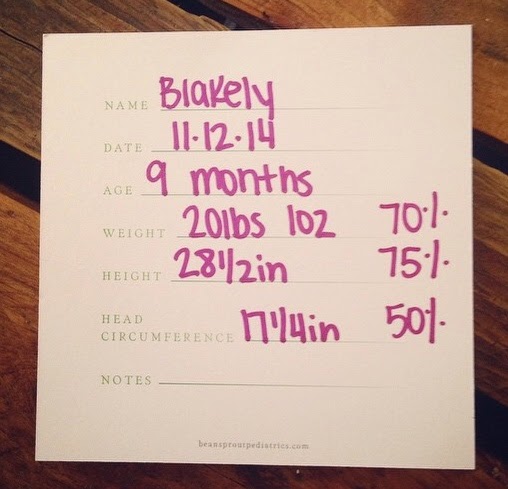 NAME Blakely
DATE 11·12·14
AGE 9 months
WEIGHT 20lbs 1oz 70%
HEIGHT 28 1/2in 75%
HEAD
CIRCUMFERENCE 17 1/4in 50%
NOTES
beansproutpediatrics.com